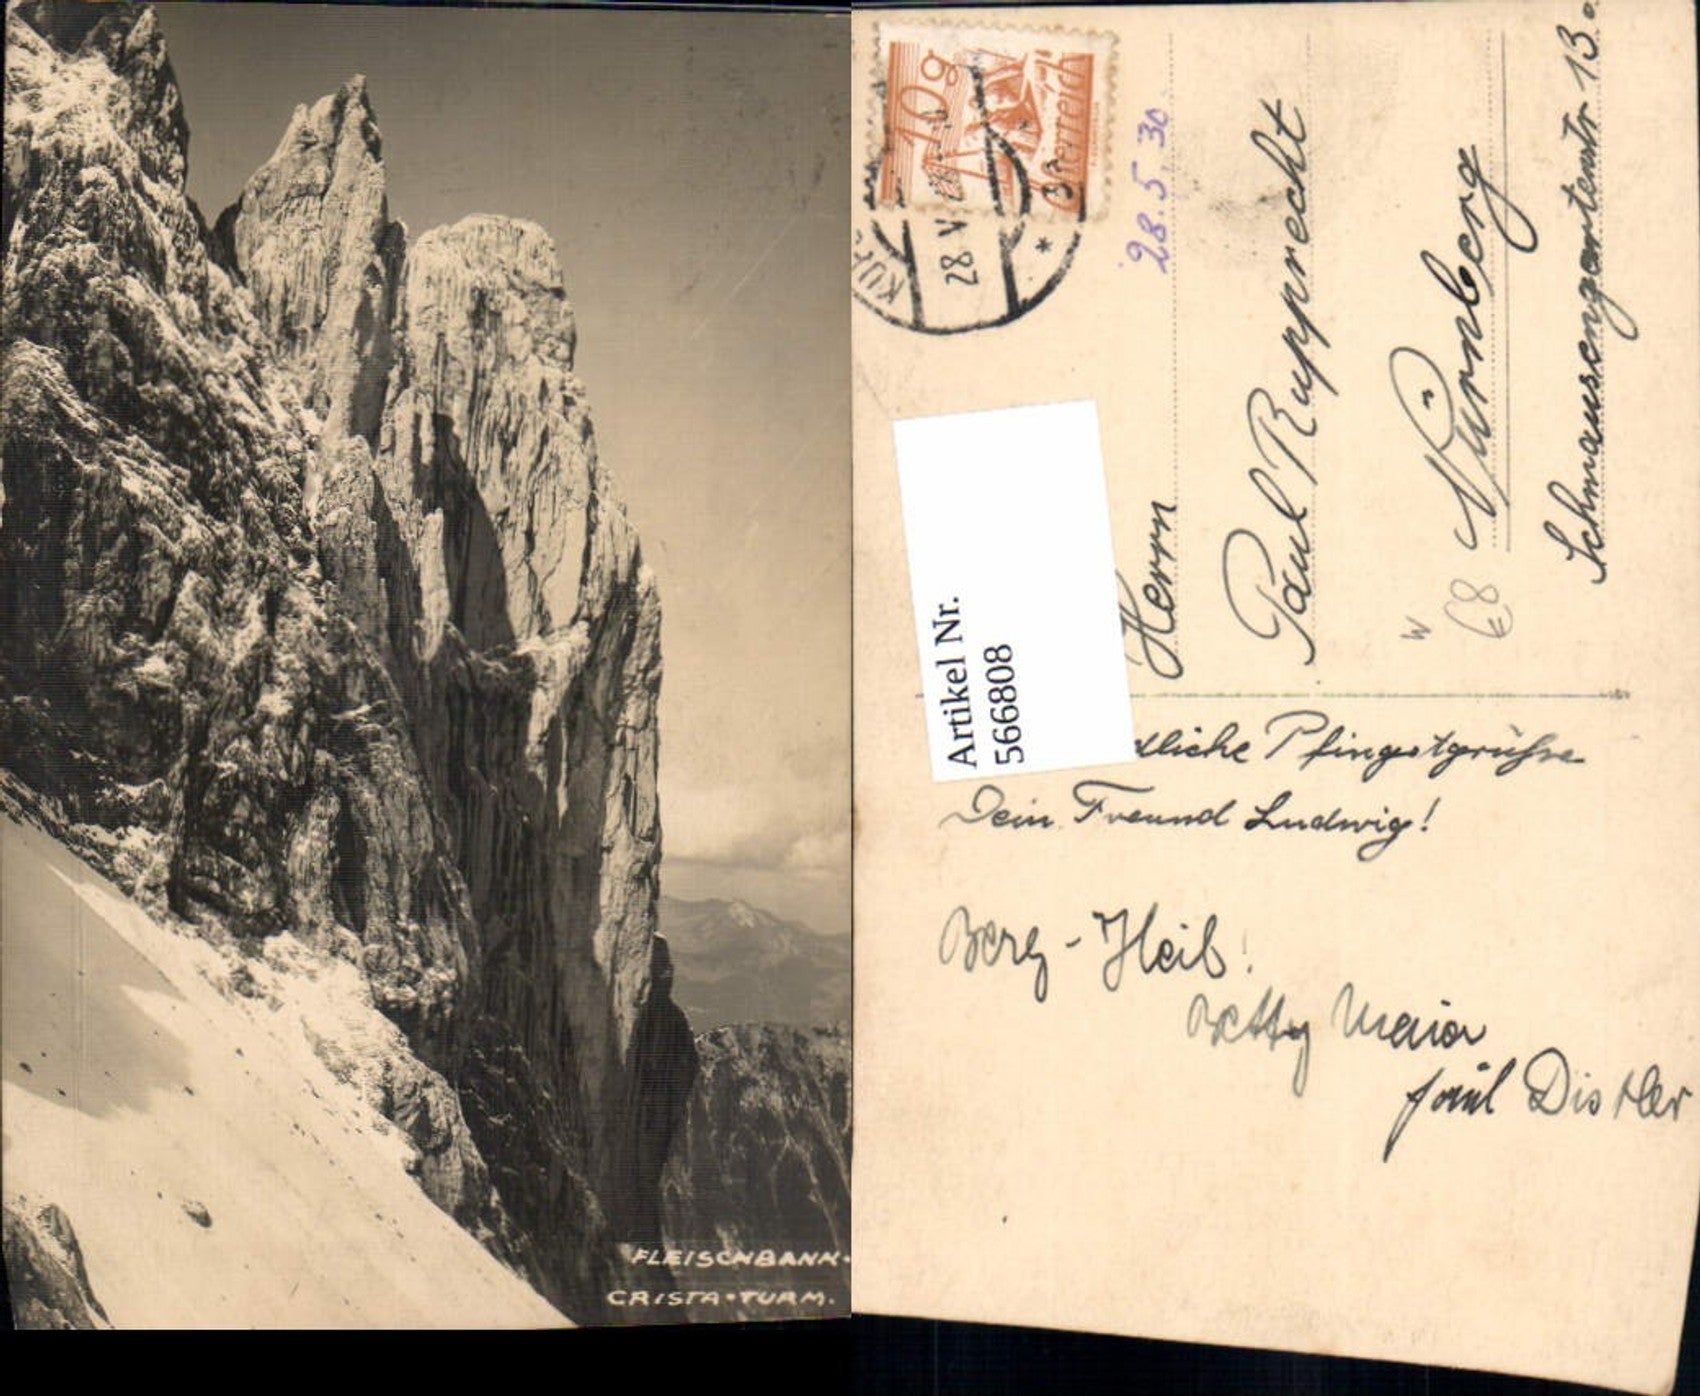 FLEISCHBANK-
CRISTA-TURM.
10g
Österreich
KUF
28 V
28.5.30
Artikel Nr.
566808
Herrn
Paul Rupprecht
Nürnberg
Schnausengartenstr 13.
W
€8
dliche Pfingstgrüße
Dein Freund Ludwig!
Berg-Heil!
Betty Maier
Paul Distler